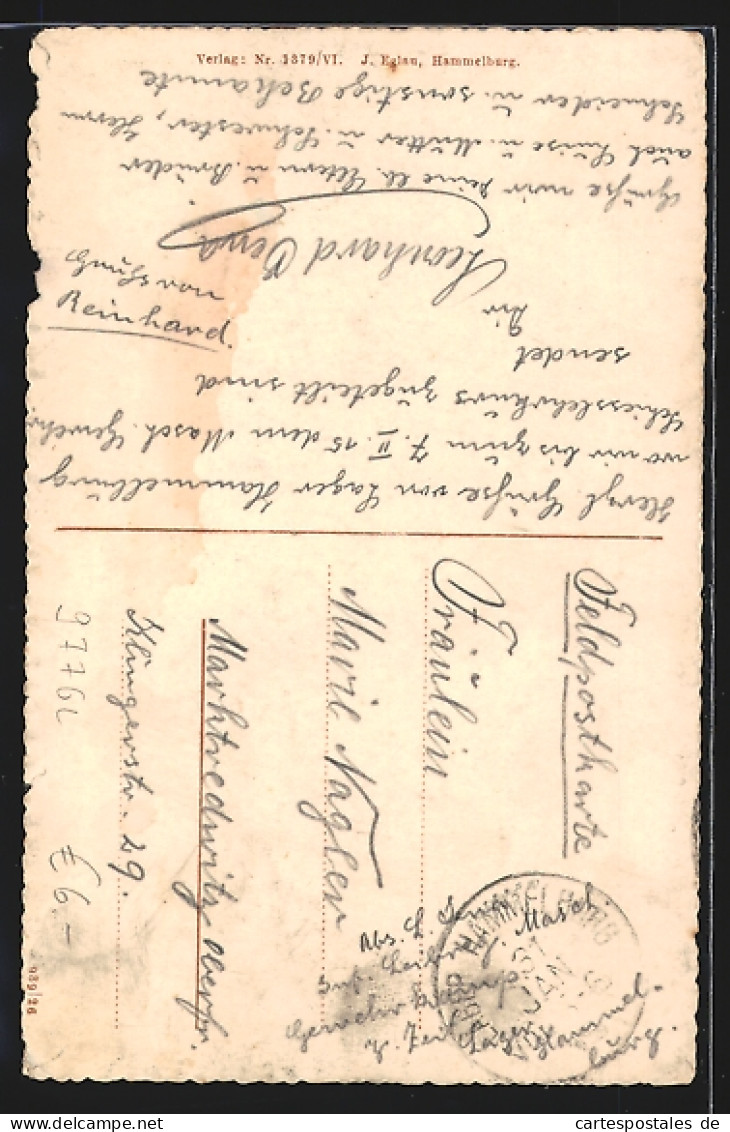 Verlag: Nr. 1379/VI. J. Eglau, Hammelburg.
Herzl. Grüße von Lager Hammelburg
wo wir bis zum 7. II. 15 dem Masch. Gewehr
Schiesslehrkurs zugeteilt sind
sendet
Dir
Leonhard
Reinhard.
Grüße mir Deine lb. Eltern u. Brüder
auch Luise u. Mutter u. Schwester, Herrn
Schneider u. sonstige Bekannte
Feldpostkarte
Fräulein
Marie Nagler
Marktredwitz Oberfr.
Klingerstr. 29.
Abs. L.
Inf. Leib Masch
Gewehr Komp
z. Zeit Lager Hammel-
burg.
HAMMELBURG
31
JAN
9776L
€ 6.-
939/26
www.cartespostales.de